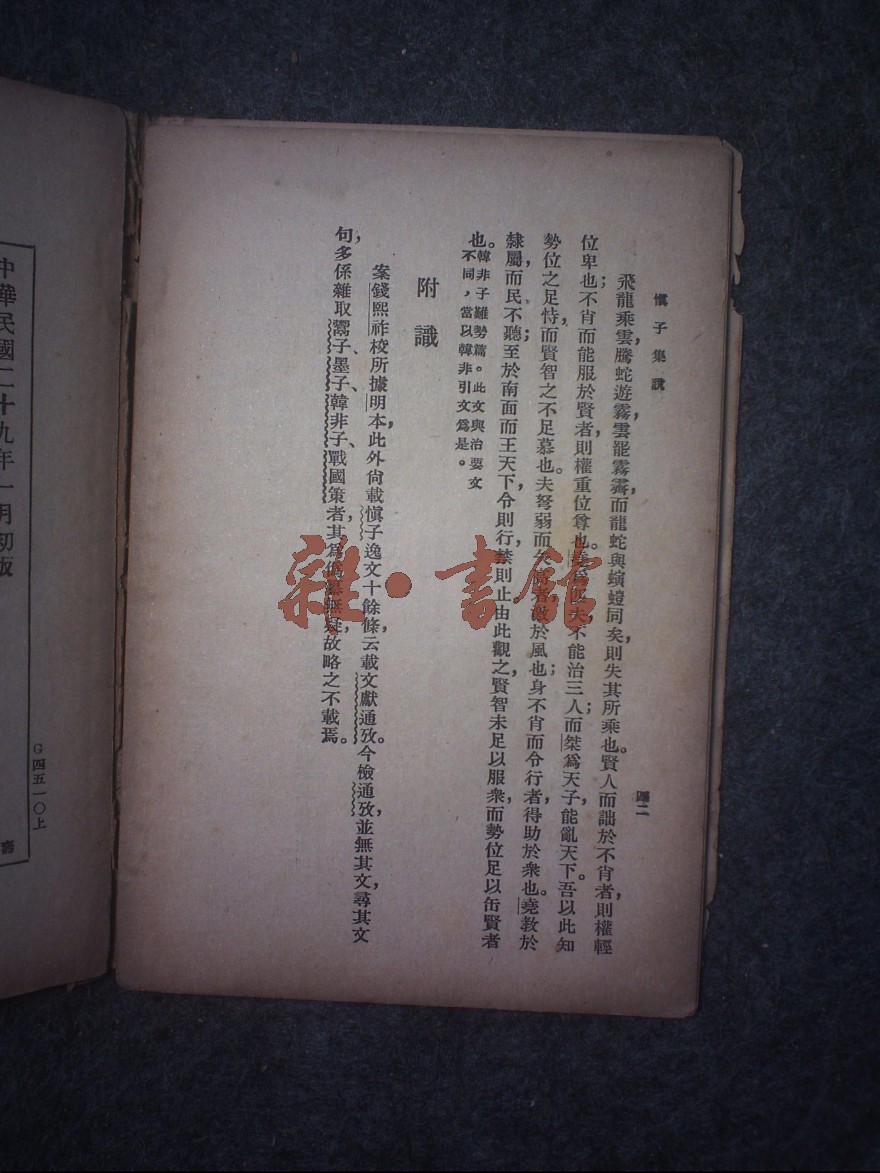 慎子集說
四二
飛龍乘雲，騰蛇遊霧，雲罷霧霽，而龍蛇與螾螘同矣，則失其所乘也。賢人而詘於不肖者，則權輕
位卑也；不肖而能服於賢者，則權重位尊也。堯爲匹夫，不能治三人；而桀爲天子，能亂天下。吾以此知
勢位之足恃，而賢智之不足慕也。夫弩弱而矢高者，激於風也；身不肖而令行者，得助於衆也。堯敎於
隸屬而民不聽；至於南面而王天下，令則行，禁則止。由此觀之，賢智未足以服衆，而勢位足以缶賢者
也。韓非子難勢篇。此文與治要文
不同，當以韓非引文爲是。
附識
案錢熙祚校所據明本，此外尙載慎子逸文十餘條，云載文獻通攷。今檢通攷，並無其文，尋其文
句，多係雜取鬻子、墨子、韓非子、戰國策者，其爲僞纂無疑，故略之不載焉。
中華民國二十九年一月初版
G四五一〇上
雜·書館